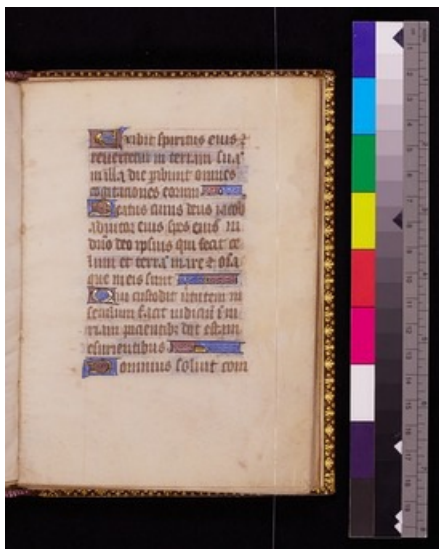 Exibit spiritus eius ⁊
reuertetur in terram suā
in illa die peribunt omnes
cogitationes eorum
Beatus cuius deus iacob
adiutor eius spes eius in
dn̄o deo ipsius qui fecit ce
lum et terrā mare ⁊ oīa
que in eis sunt
Qui custodit ueritatem in
seculum facit iudiciū iniu
riam pacientibꝫ dat escam
esurientibus
Dominus soluit com